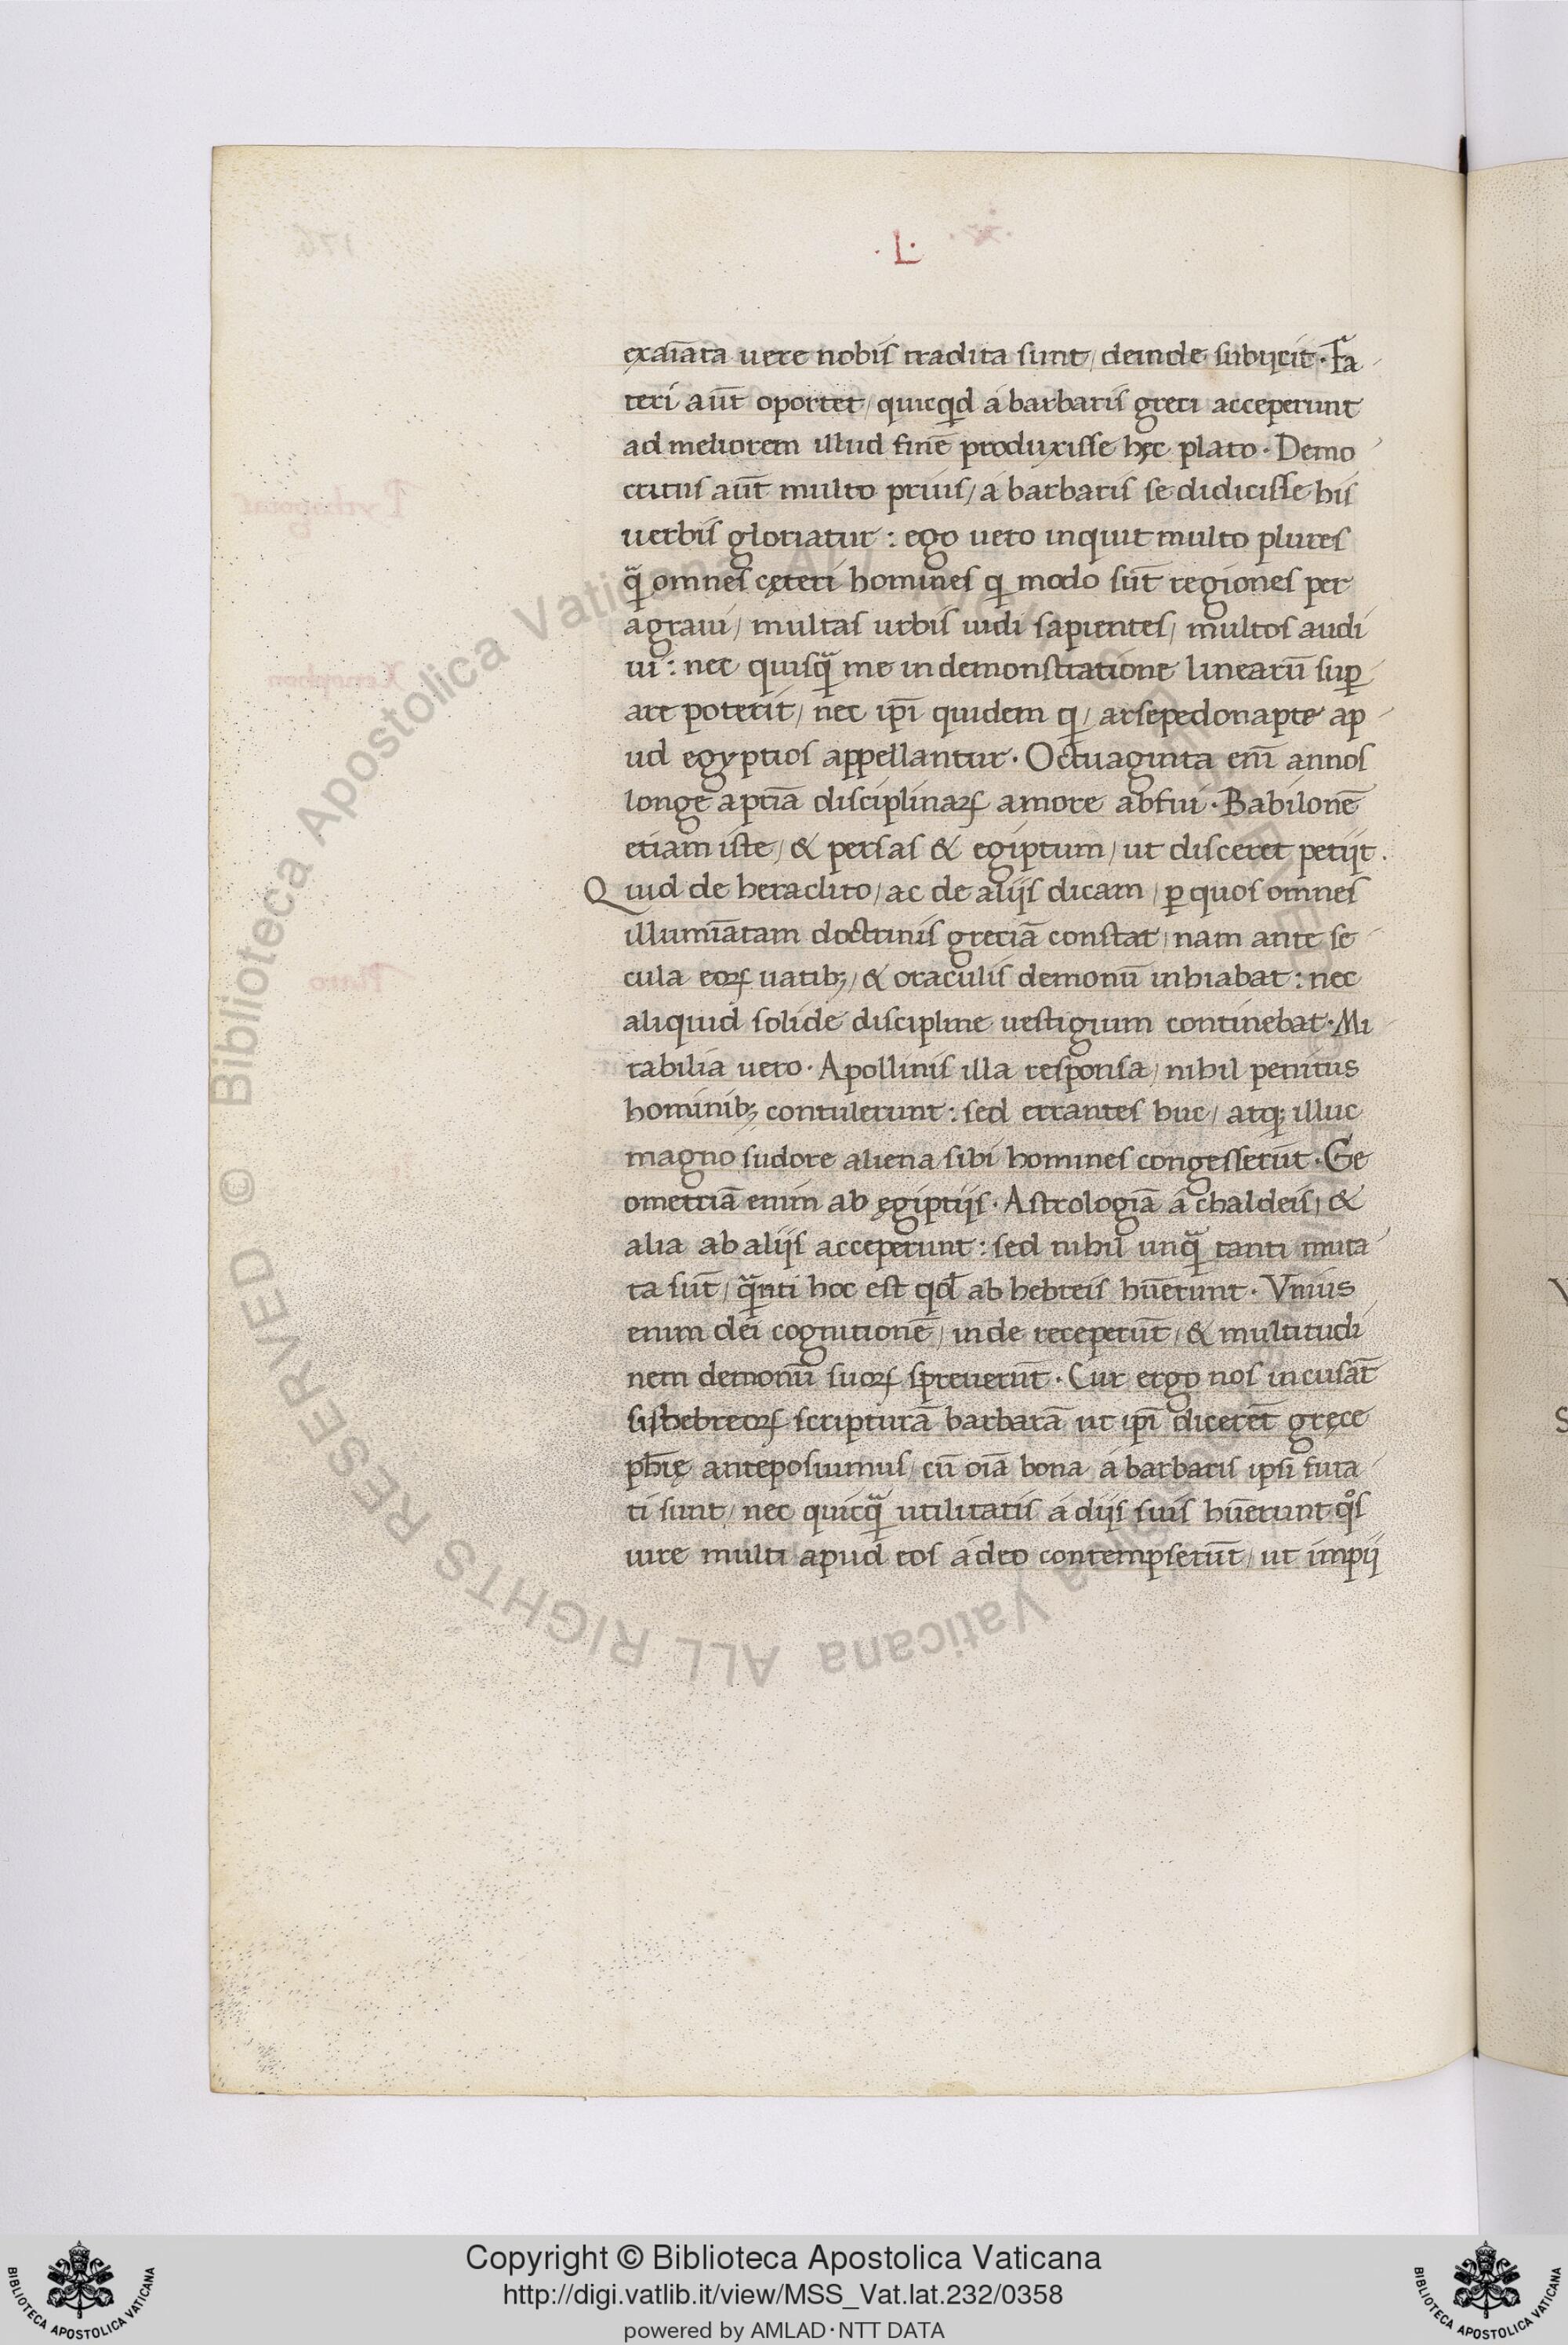 ·L·
exaīata uere nobis tradita sunt/ deinde subijcit· Fa
teri aūt oportet/ quicqͥd á barbaris greci acceperunt
ad meliorem illud finē produxisse hęc plato· Demo
critus aūt multo prius/ á barbaris se didicisse his
uerbis gloriatur: ego uero inquit multo plures
qᷓ omnes cęteri homines qͥ modo sūt regiones per
agraui/ multas urbis uidi sapientes/ multos audi
ui: nec quisqᷓ me in demonstratione linearū suꝑ
are poterit/ nec ip̄i quidem qͥ/ arsepedonapte ap
ud egyptios appellantur· Octuaginta em̄ annos
longe a pr̄iā disciplinaꝝ amore abfui· Babilonē
etiam iste/ & persas & egiptum/ ut disceret petijt.
Quid de heraclito/ ac de alijs dicam/ ꝑ quos omnes
illumīatam doctrinis greciā constat/ nam ante se
cula eoꝝ uatibꝫ/ & oraculis demonū inhiabat: nec
aliquid solide discipline uestigium continebat· Mi
rabilia uero· Apollinis illa responsa/ nihil penitus
hominibꝫ contulerunt: sed errantes huc/ atqꝫ illuc
magno sudore aliena sibi homines congesserūt· Ge
ometriā enim ab ęgiptijs· Astrologiā á chaldeis/ &
alia ab alijs acceperunt: sed nihil unqᷓ tanti muta
ta sūt/ qᷓnti hoc est qd̄ ab hebreis hūerunt· Vnius
enim dei cognitionē/ inde receperūt/ & multitudi
nem demonū suoꝝ spreuerūt· Cur ergo nos incusāt
si hebreoꝝ scripturā barbarā ut ip̄i dicerēt gręce
ph̄ię anteposuimus/ cū oīa bona á barbaris ipsi fura
ti sunt/ nec quicqᷓ utilitatis á dijs suis hūerunt qͦs
iure multi apud eos adeo contempserūt/ ut impij
Copyright © Biblioteca Apostolica Vaticana
http://digi.vatlib.it/view/MSS_Vat.lat.232/0358
powered by AMLAD·NTT DATA
BIBLIOTECA APOSTOLICA VATICANA
BIBLIOTECA APOSTOLICA VATICANA
© Biblioteca Apostolica Vaticana ALL RIGHTS RESERVED